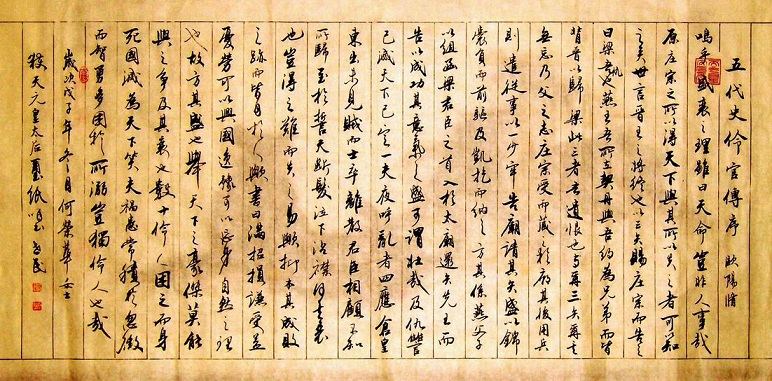 五代史伶官傳序 歐陽脩
嗚乎盛衰之理雖曰天命豈非人事哉
原庄宗之所以得天下與其所以失之者可知
之矣世言晉王之將終也以三矢賜庄宗而告之
曰梁吾仇也燕王吾所立契丹與吾約為兄弟而皆
背晉以歸梁此三者吾遺恨也与尔三矢尔其
無忘乃父之志庄宗受而藏之於廟其後用兵
則遣從事以一少牢告廟請其矢盛以錦
囊負而前驅及凱旋而納之方其係燕父子
以組函梁君臣之首入於太廟還矢先王而
告以成功其意氣之盛可謂壯哉及仇讐
已滅天下已定一夫夜呼亂者四應倉皇
東出未見賊而士卒離散君臣相顧不知
所歸至於誓天斷髮泣下沾襟何其衰
也豈得之難而失之易歟抑本其成敗
之跡而皆自於人歟書曰滿招損謙受益
憂勞可以興國逸豫可以亡身自然之理
也故方其盛也舉天下之豪傑莫能
與之爭及其衰也數十伶人困之而身
死國滅為天下笑夫禍患常積於忽微
而智勇多困於所溺豈獨伶人也哉
歲次戊子年冬月何榮華女士
天元皇太后夏紙